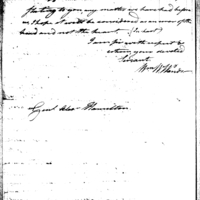 to you any matter we have had before
I hope it will be considered as an error of the
head and not the heart (in haste)
I am sir with respect &
esteem your devoted
Servant
Wm W
Genl Alex Hamilton